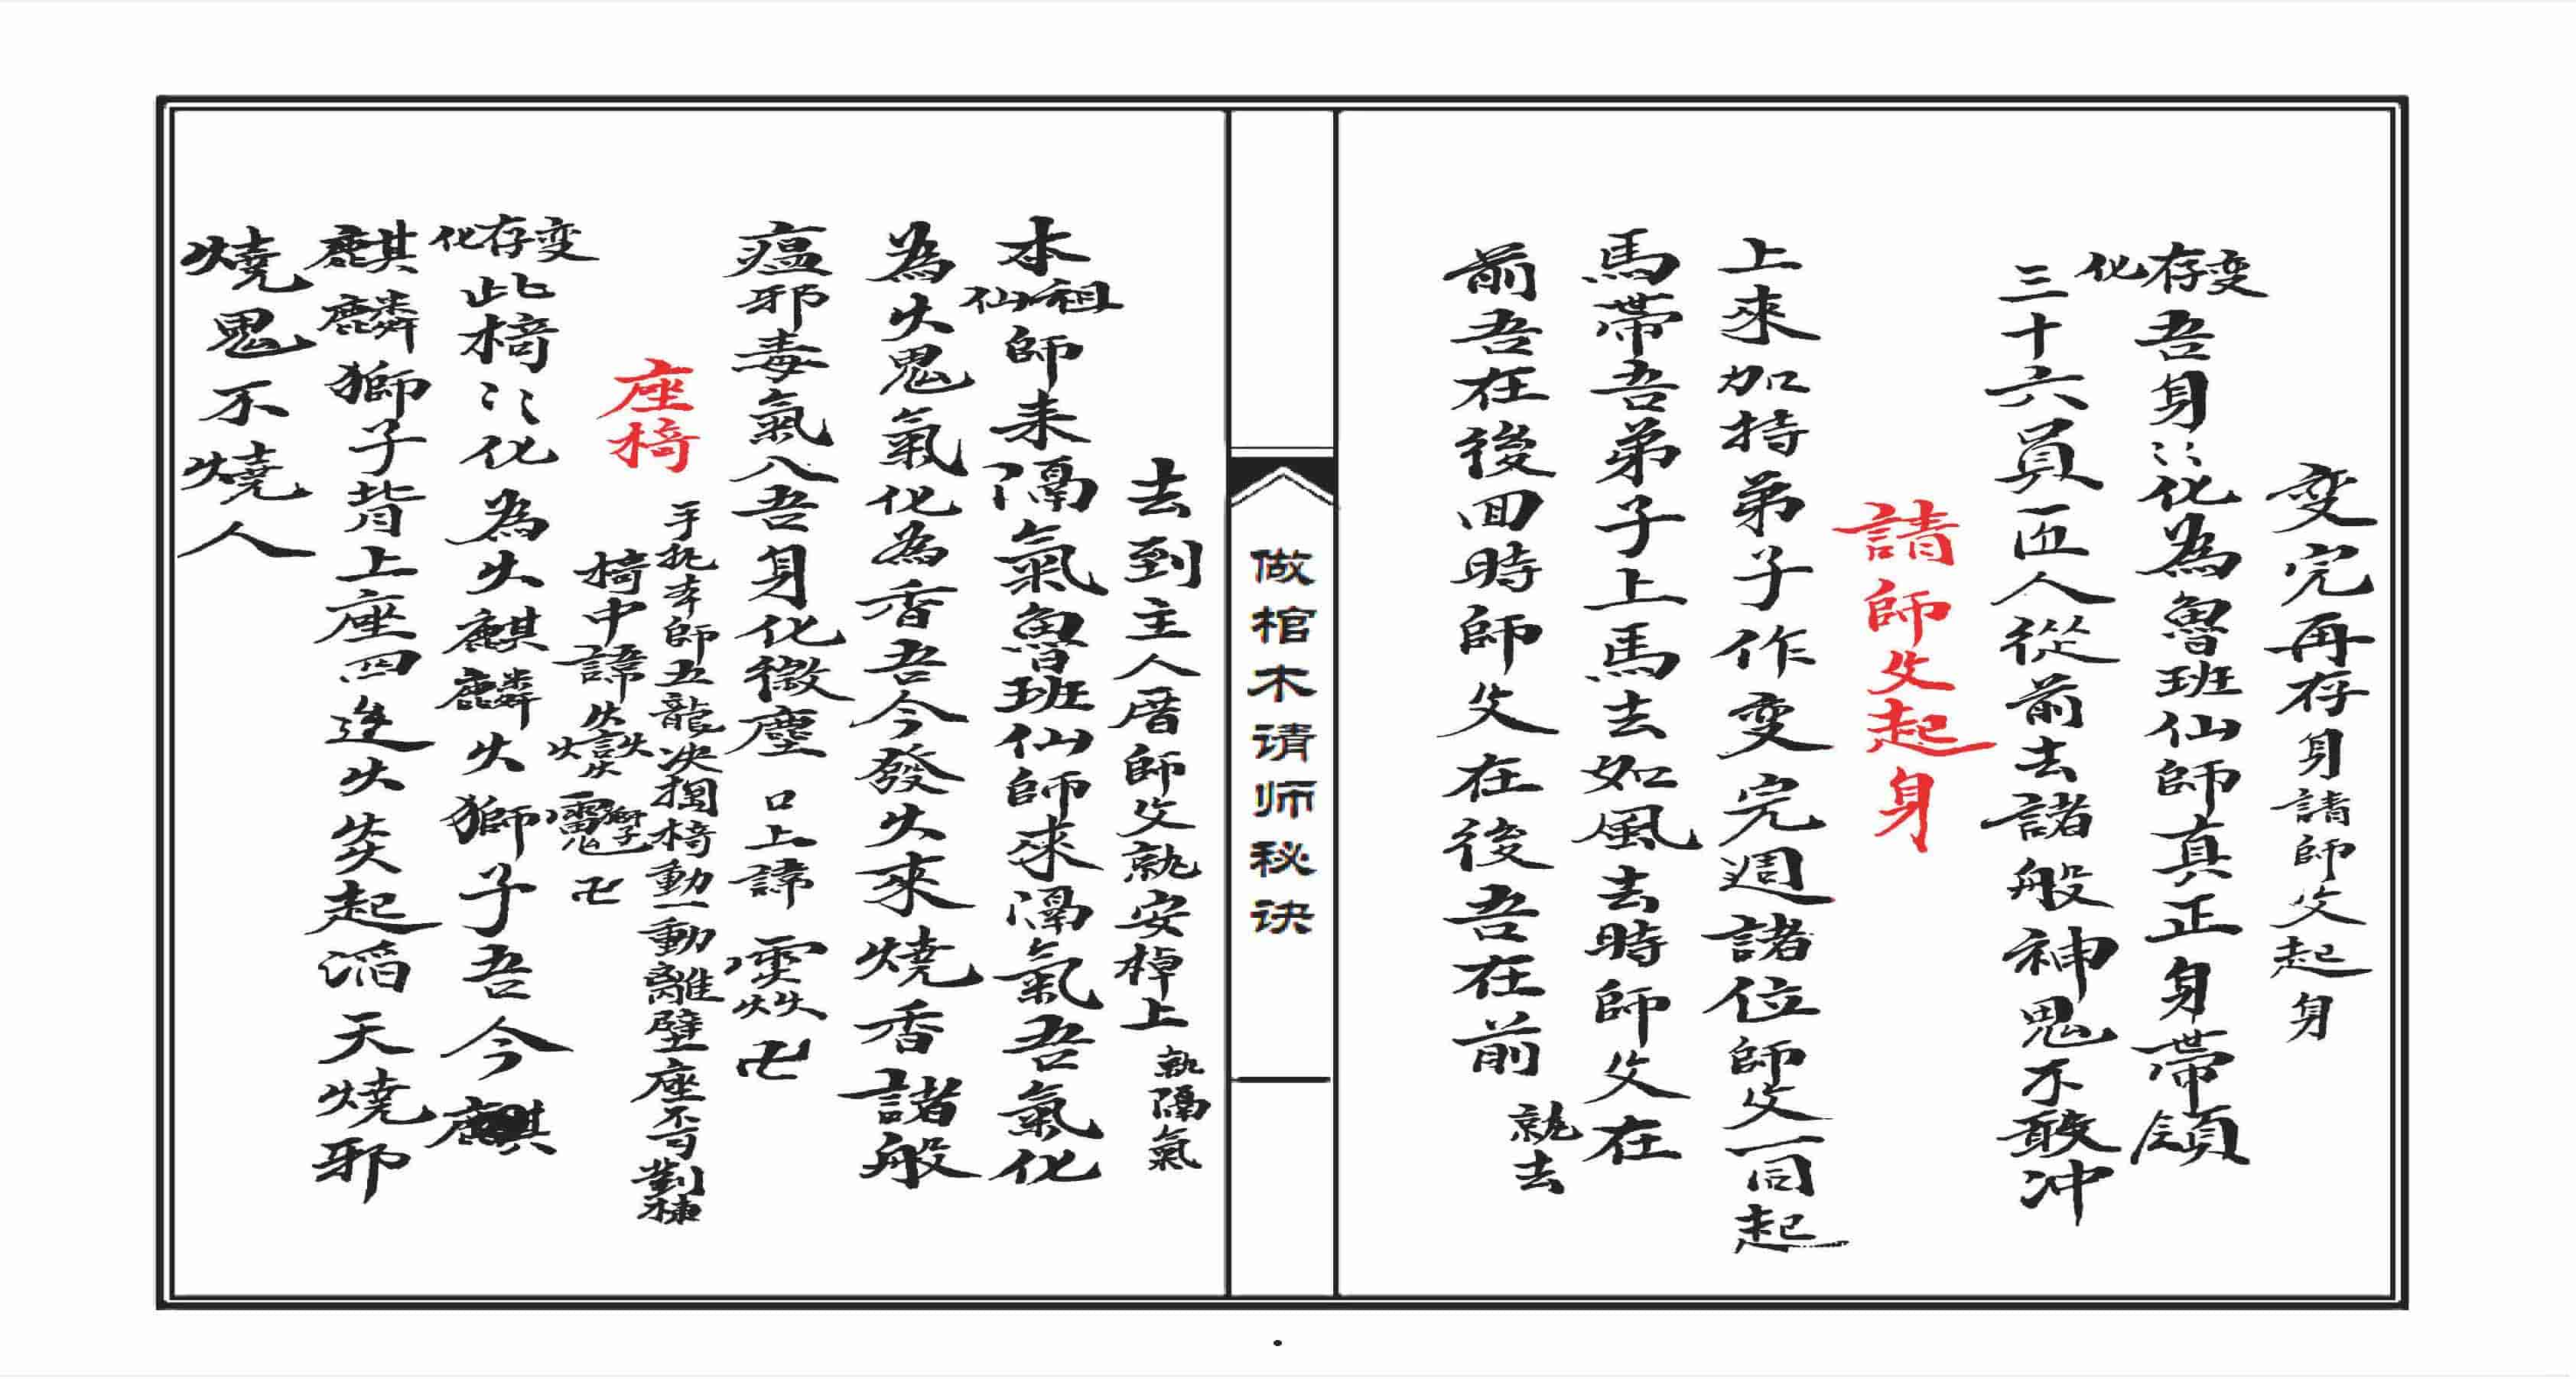 变完再存身請師父起身
变存化吾身〻化為魯班仙師真正身帶領
三十六員匠人從前去諸般神鬼不敢冲
請師父起身
上來加持弟子作变完週諸位師父一同起
馬帶吾弟子上馬去如風去時師父在
前吾在後回時師父在後吾在前 就去
做棺木请师秘诀
去到主人厝師父就安棹上 執隔氣
本祖仙師来隔氣魯班仙師來隔氣吾氣化
為火鬼氣化為香吾今發火來燒香諸般
瘟邪毒氣入吾身化微塵 口上諱 卍
座椅
手托本師五龍决揭椅動一動離壁座
椅中諱 卍
变存化此椅〻化為火麒麟火獅子吾今麒
麒麟獅子背上座四边火炎起滔天燒邪
燒鬼不燒人